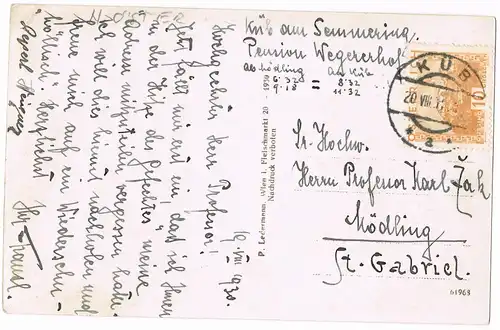 Küb am Semmering.
Pension Wegererhof
ab Mödling an Küb
6.32 = 8.32
9.18 11.32
KÜB
20. VIII.
10
Sr. Hochw.
Herrn Professor Karl Žák
Mödling
St. Gabriel.
61963
P. Ledermann, Wien I, Fleischmarkt 20 1930
Nachdruck verboten
19. VIII 1930.
Hochgeehrter Herr Professor!
Jetzt fällt mir erst ein, dass ich Ihnen
in der Hitze des Gefechtes meine
vergessen habe.
Ich will dies hiemit nachholen und
freue mich auf ein Wiedersehn
Herzlichst
Ihr Franz